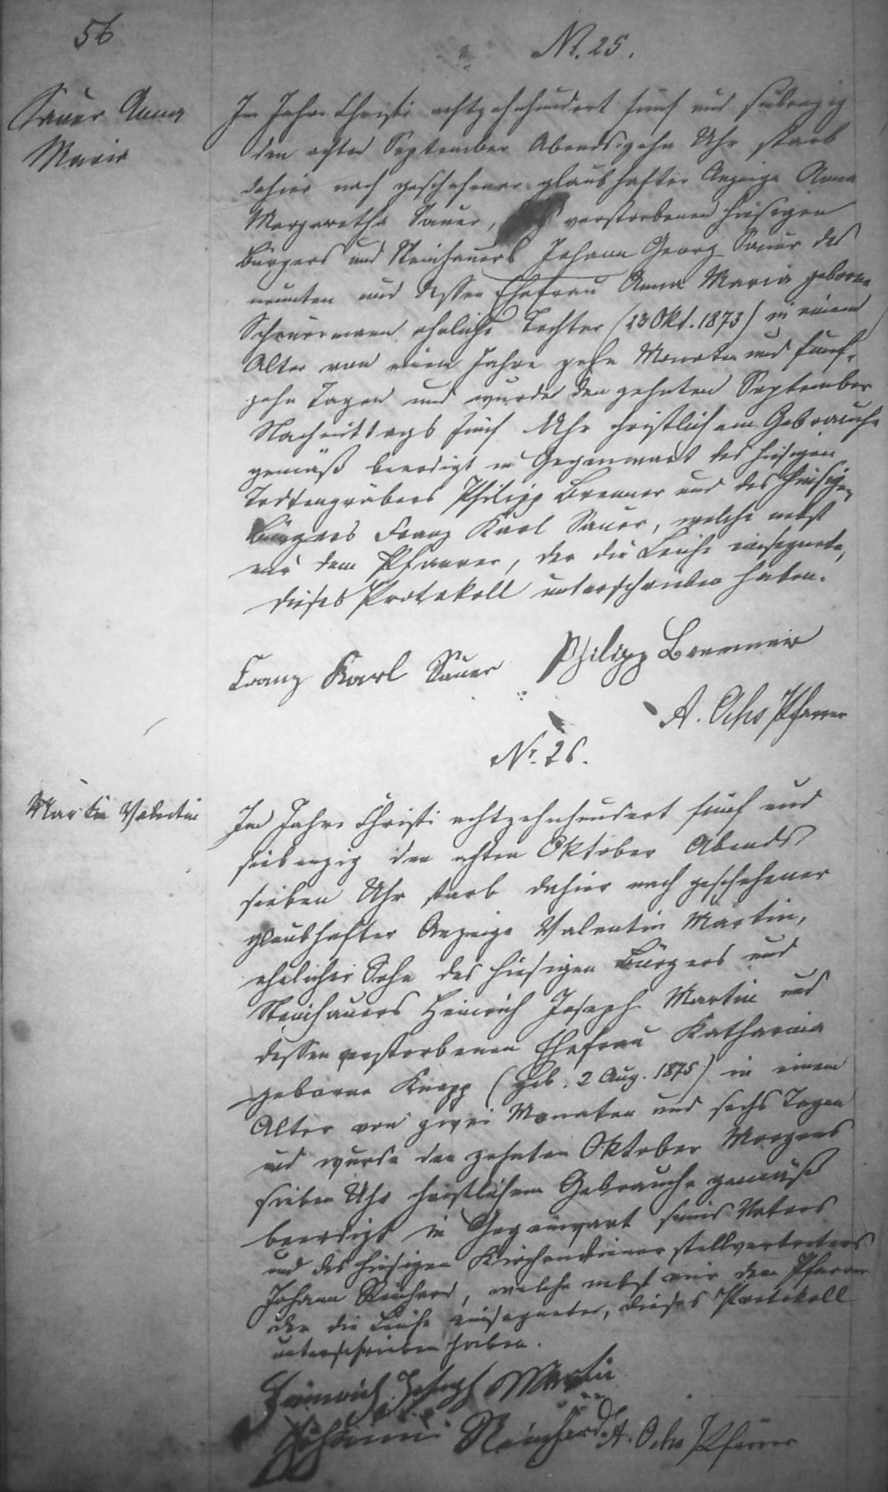 56
No. 25.
Sauer Anna
Maria
Im Jahre Christi achtzehnhundert fünf und siebenzig
den achten September Abends zehn Uhr starb
dahier nach geschehener glaubhafter Anzeige Anna
Margaretha Sauer, des verstorbenen hiesigen
Bürgers und Steinhauers Johann Georg Sauer des
neunten und dessen Ehefrau Anna Maria geborne
eheliche Tochter (23 Okt. 1873) in einem
Alter von einem Jahre zehn Monaten und fünf-
zehn Tagen und wurde den zehnten September
Nachmittags fünf Uhr christlichem Gebrauche
gemäß beerdigt in Gegenwart des hiesigen
Todtengräbers Philipp Bremmer und des hiesigen
Bürgers Franz Karl Sauer, welche nebst
mir dem Pfarrer, der die Leiche einsegnete,
dieses Protokoll unterschrieben haben.
Franz Karl Sauer Philipp Bremmer
A. Ochs Pfarrer
No. 26.
Martin Valentin
Im Jahre Christi achtzehnhundert fünf und
siebenzig den achten Oktober Abends
sieben Uhr starb dahier nach geschehener
glaubhafter Anzeige Valentin Martin,
ehelicher Sohn des hiesigen Bürgers und
Steinhauers Heinrich Joseph Martin und
dessen verstorbenen Ehefrau Katharina
geborne Knapp (geb. 2 Aug. 1875) in einem
Alter von zwei Monaten und sechs Tagen
und wurde den zehnten Oktober Morgens
sieben Uhr christlichem Gebrauche gemäß
beerdigt in Gegenwart seines Vaters
und des hiesigen Kirchendiener stellvertreters
Johann Reinhard, welche nebst mir dem Pfarrer
der die Leiche einsegnete, dieses Protokoll
unterschrieben haben.
Heinrich Joseph Martin
Johann Reinhard A. Ochs Pfarrer